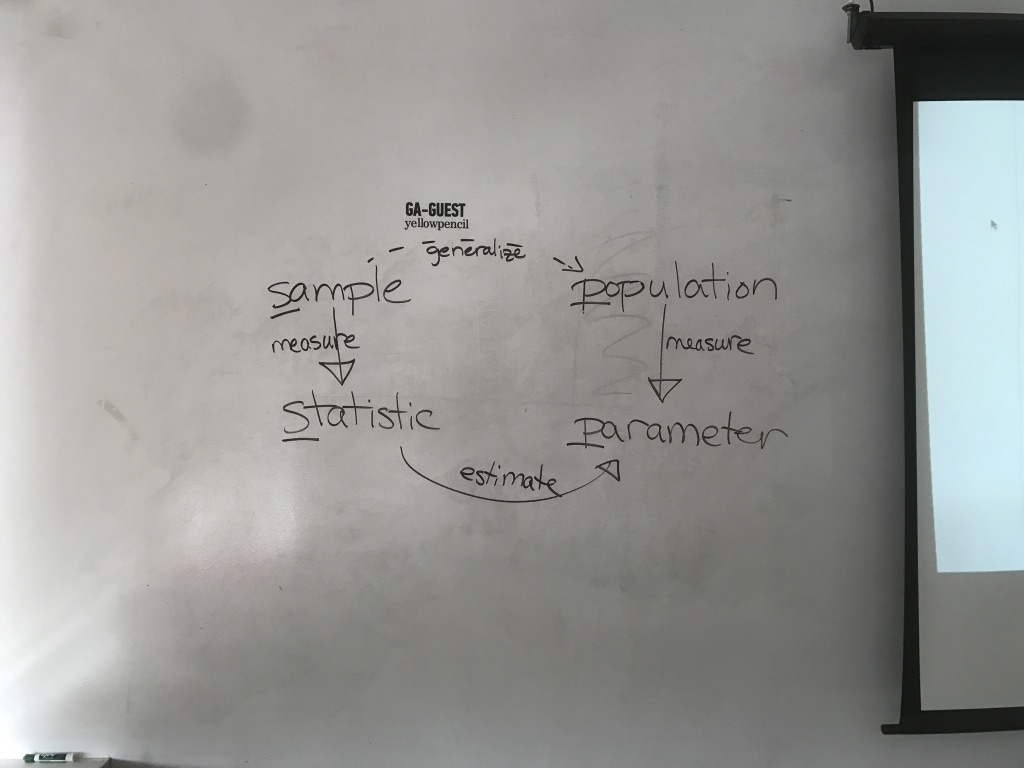 GA-GUEST
yellowpencil
generalize
sample
population
measure
measure
statistic
parameter
estimate